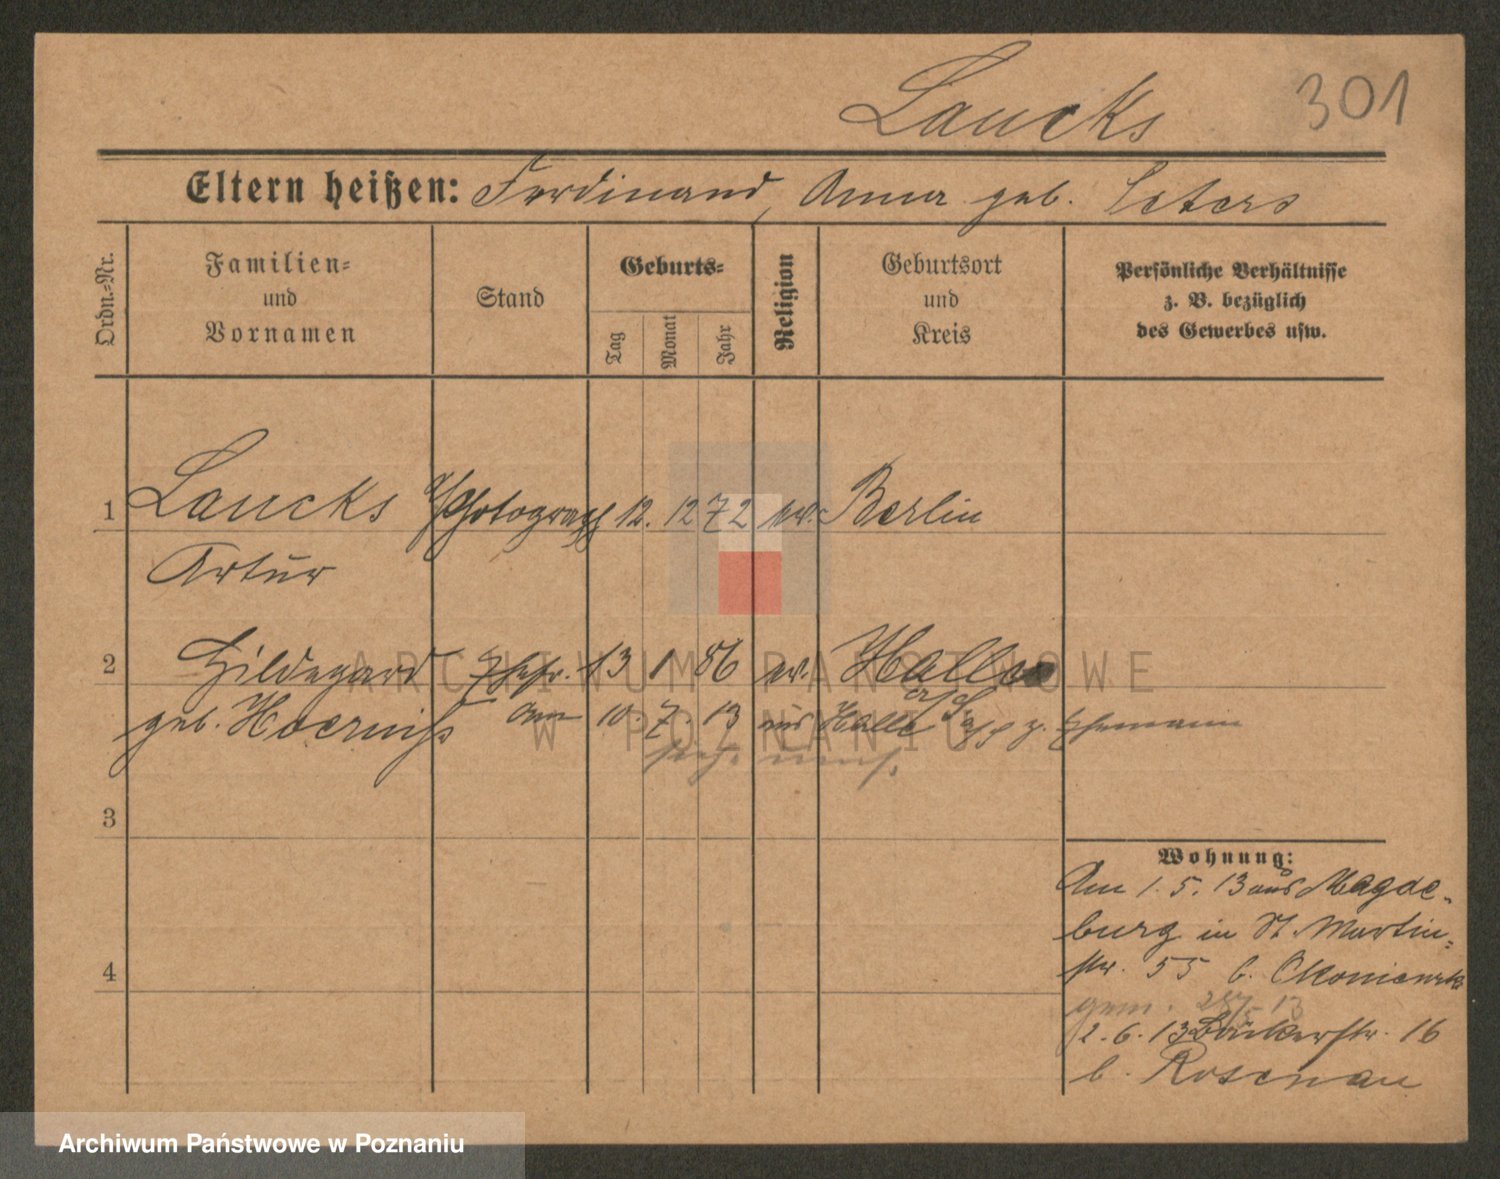 Laucks 301
Eltern heißen: Ferdinand, Anna geb. Peters
Ordn.-Nr.
Familien-
und
Vornamen
Stand
Geburts-
Tag
Monat
Jahr
Religion
Geburtsort
und
Kreis
Persönliche Verhältnisse
z. B. bezüglich
des Gewerbes usw.
1 Laucks Photograph 12. 12 72 ev. Berlin
Artur
2 Hildegard Ehefr. 13 1 86 ev. Halle
a/S
geb. Hoerniss am 10. 7. 13 aus Halle a/S z. Ehemann
3
4
Wohnung:
Am 1. 5. 13 aus Magde-
burg in St. Martin-
str. 55 b.
gem. 28/5 13
2. 6. 13 Bäckerstr. 16
b. Rosenau
ARCHIWUM PAŃSTWOWE
W POZNANIU
Archiwum Państwowe w Poznaniu